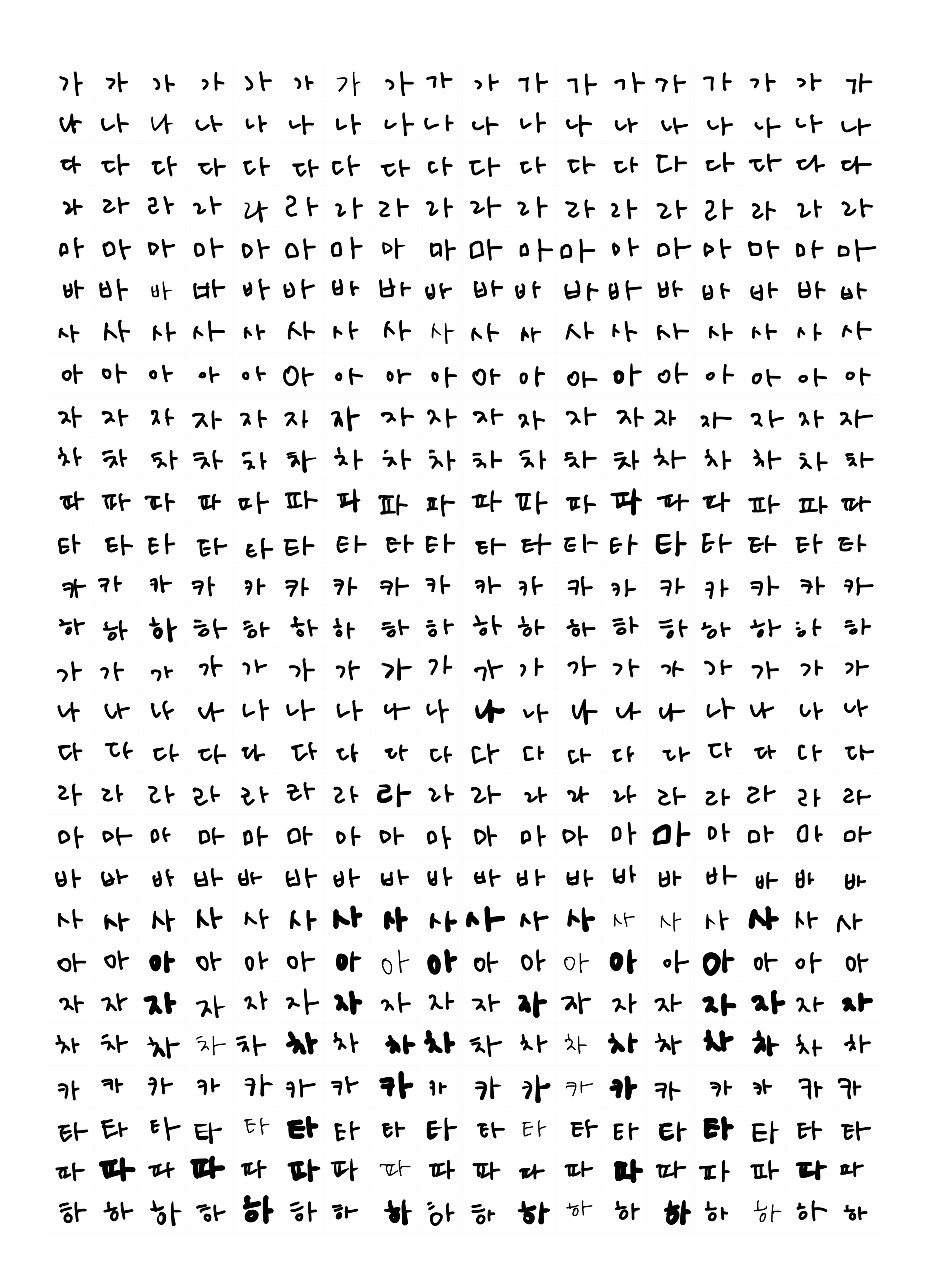 가 가 가 가 가 가 가 가 가 가 가 가 가 가 가 가 가 가
나 나 나 나 나 나 나 나 나 나 나 나 나 나 나 나 나 나
다 다 다 다 다 다 다 다 다 다 다 다 다 다 다 다 다 다
라 라 라 라 라 라 라 라 라 라 라 라 라 라 라 라 라 라
마 마 마 마 마 마 마 마 마 마 마 마 마 마 마 마 마 마
바 바 바 바 바 바 바 바 바 바 바 바 바 바 바 바 바 바
사 사 사 사 사 사 사 사 사 사 사 사 사 사 사 사 사 사
아 아 아 아 아 아 아 아 아 아 아 아 아 아 아 아 아 아
자 자 자 자 자 자 자 자 자 자 자 자 자 자 자 자 자 자
차 차 차 차 차 차 차 차 차 차 차 차 차 차 차 차 차 차
파 파 파 파 파 파 파 파 파 파 파 파 파 파 파 파 파 파
타 타 타 타 타 타 타 타 타 타 타 타 타 타 타 타 타 타
카 카 카 카 카 카 카 카 카 카 카 카 카 카 카 카 카 카
하 하 하 하 하 하 하 하 하 하 하 하 하 하 하 하 하 하
가 가 가 가 가 가 가 가 가 가 가 가 가 가 가 가 가 가
나 나 나 나 나 나 나 나 나 나 나 나 나 나 나 나 나 나
다 다 다 다 다 다 다 다 다 다 다 다 다 다 다 다 다 다
라 라 라 라 라 라 라 라 라 라 라 라 라 라 라 라 라 라
마 마 마 마 마 마 마 마 마 마 마 마 마 마 마 마 마 마
바 바 바 바 바 바 바 바 바 바 바 바 바 바 바 바 바 바
사 사 사 사 사 사 사 사 사 사 사 사 사 사 사 사 사 사
아 아 아 아 아 아 아 아 아 아 아 아 아 아 아 아 아 아
자 자 자 자 자 자 자 자 자 자 자 자 자 자 자 자 자 자
차 차 차 차 차 차 차 차 차 차 차 차 차 차 차 차 차 차
카 카 카 카 카 카 카 카 카 카 카 카 카 카 카 카 카 카
타 타 타 타 타 타 타 타 타 타 타 타 타 타 타 타 타 타
파 파 파 파 파 파 파 파 파 파 파 파 파 파 파 파 파 파
하 하 하 하 하 하 하 하 하 하 하 하 하 하 하 하 하 하